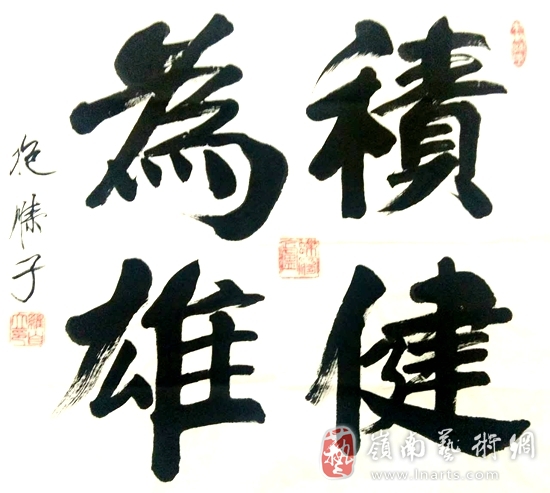 積健
為雄
嶺南藝術網
www.lnarts.com